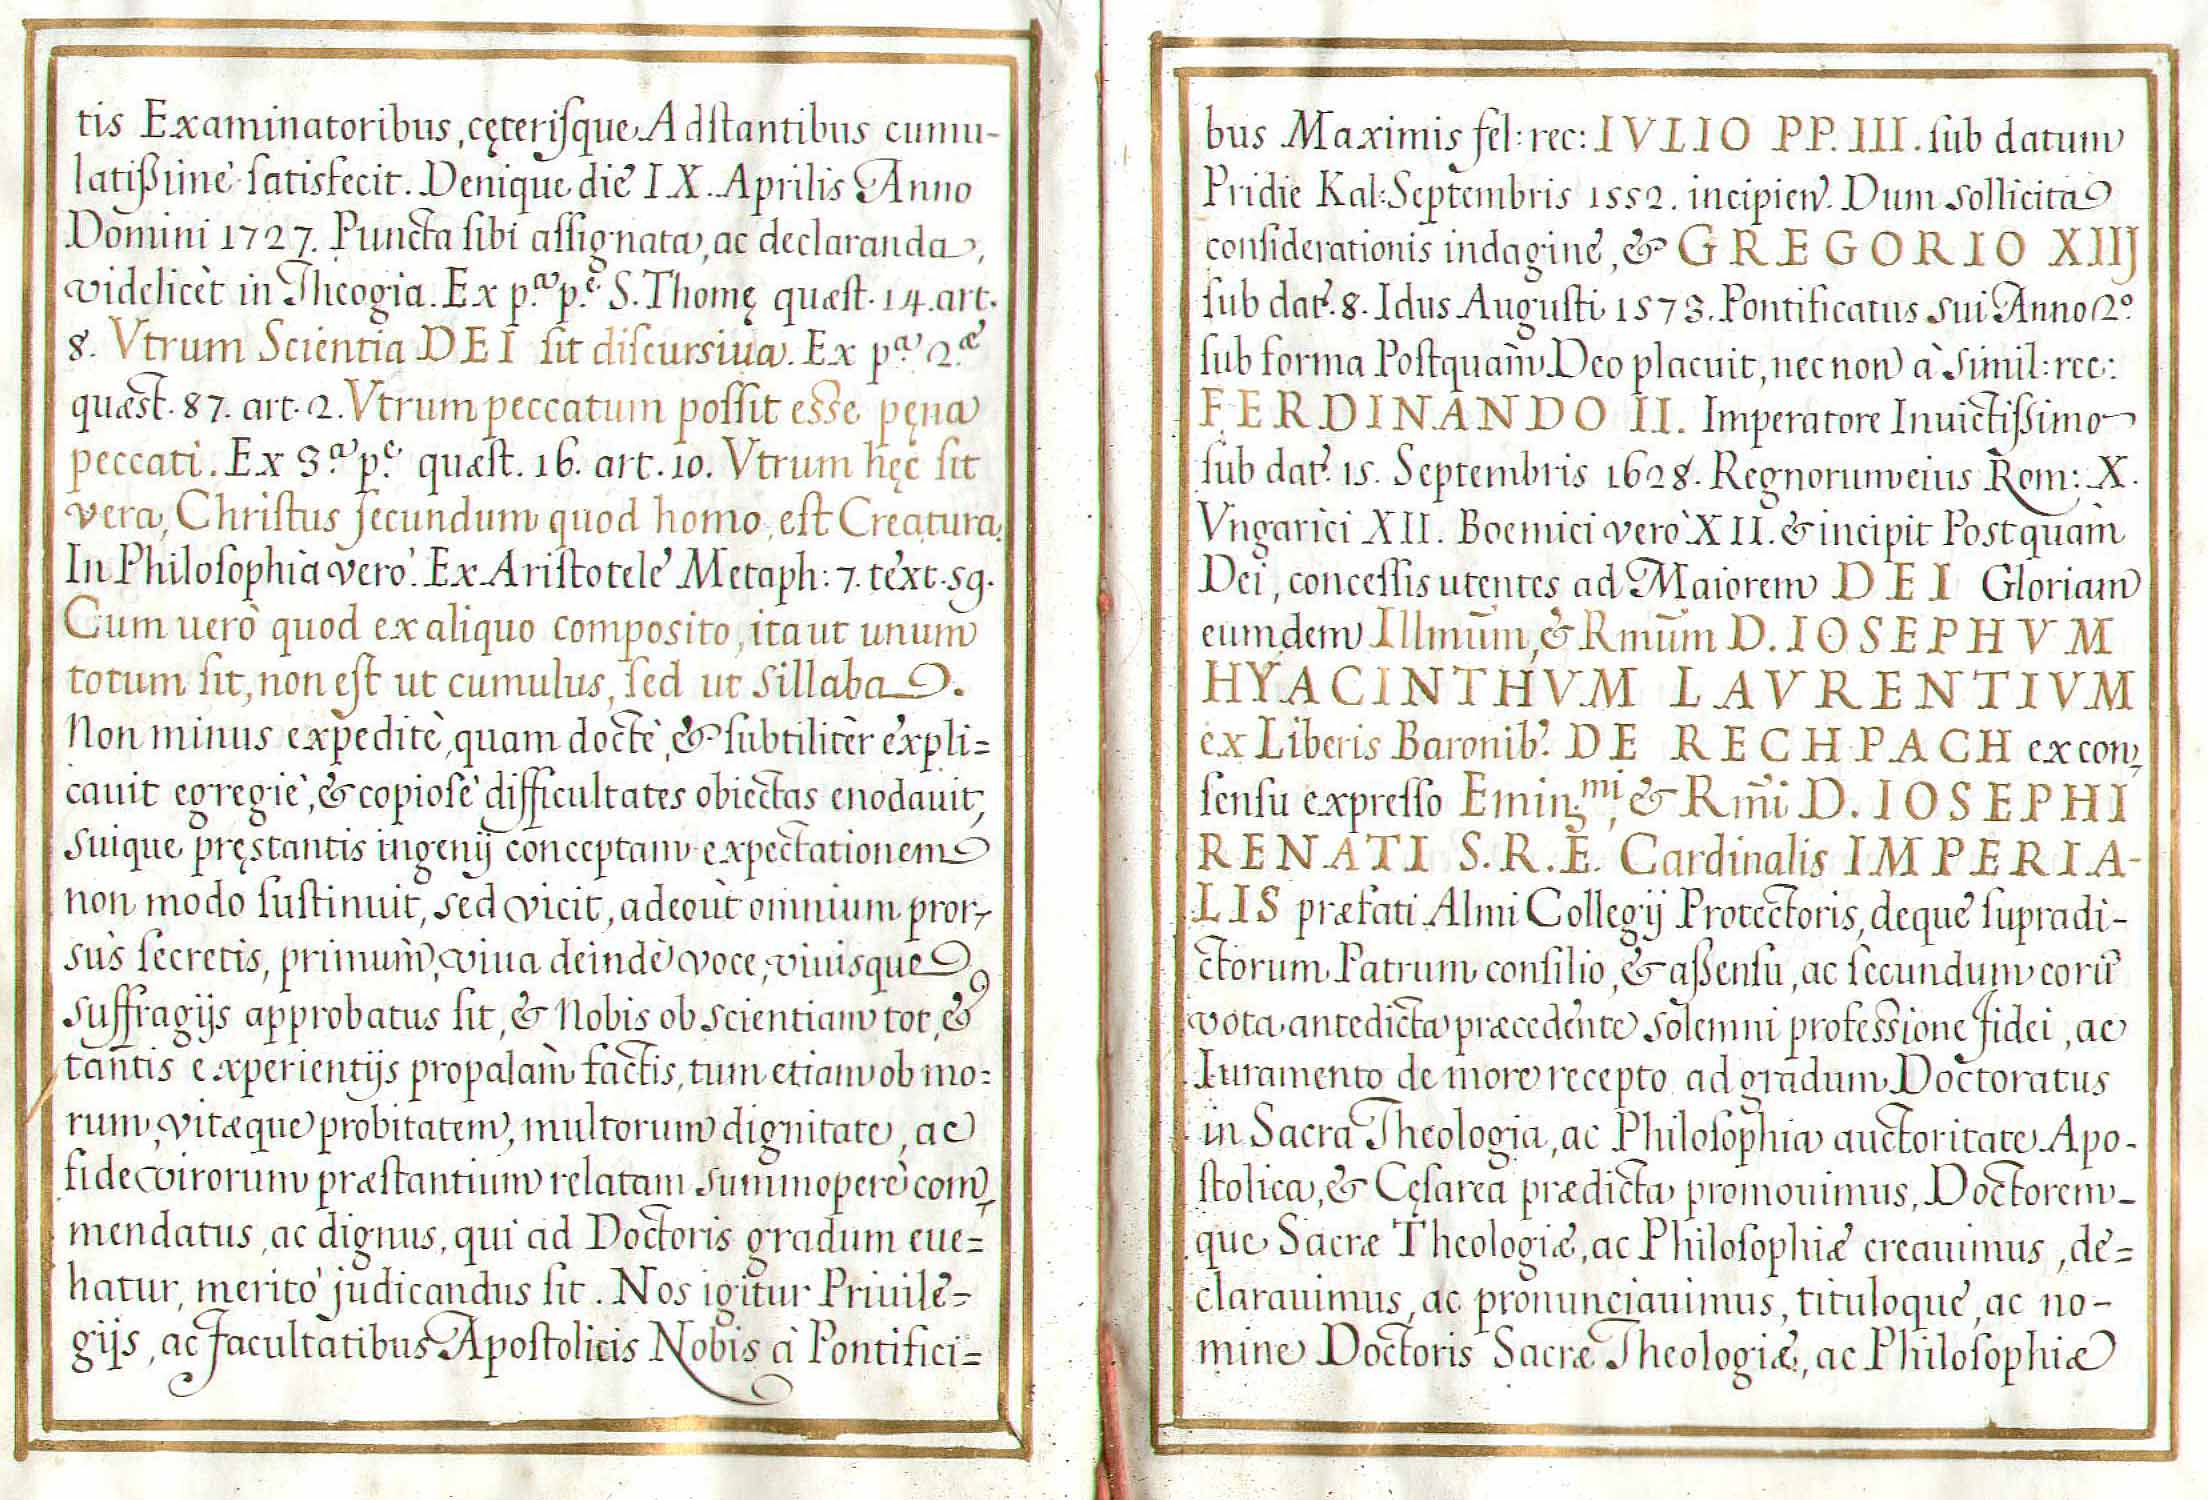 tis Examinatoribus, cęteriſque Adſtantibus cumu-
latiſſimè ſatisfecit. Denique die IX. Aprilis Anno
Domini 1727. Puncta ſibi aſſignata, ac declaranda,
videlicèt in Theogia. Ex p.ª p.ᵉ S. Thomę quæſt. 14. art.
8. Vtrum Scientia DEI ſit diſcursiua. Ex pª 2.æ
quæſt. 87. art. 2. Vtrum peccatum poſſit eſſe pęna
peccati. Ex 3.ª p.ᵉ quæſt. 16. art. 10. Vtrum hęc ſit
vera, Chriſtus ſecundum quod homo, eſt Creatura.
In Philoſophia verò. Ex Ariſtotele Metaph: 7. text. 59.
Cum uerò quod ex aliquo composito, ita ut unum
totum ſit, non eſt ut cumulus, ſed ut Sillaba.
Non minus expeditè, quam doctè, & ſubtilitèr expli=
cauit egregiè, & copioſè difficultates obiectas enodauit,
suique pręstantis ingenij conceptam expectationem
non modo ſuſtinuit, sed vicit, adeoùt omnium pror-
sùs ſecretis, primùm, viua deindè voce, viuisque
suffragijs approbatus ſit, & Nobis ob scientiam tot, &
tantis experientijs propalàm factis, tum etiam ob mo=
rum, vitæque probitatem, multorum dignitate, ac
fide virorum præſtantium relatam summoperè com-
mendatus, ac dignus, qui ad Doctoris gradum eue=
hatur, meritò judicandus ſit. Nos igitur Priuile=
gijs, ac facultatibus Apoſtolicis Nobis à Pontifici=
bus Maximis fel: rec: IVLIO PP. III. ſub datum
Pridie Kal: Septembris 1552. incipien. Dum sollicita
conſiderationis indagine, & GREGORIO XIIJ
ſub dat. 8. Idus Auguſti 1573. Pontificatus sui Anno 2º
ſub forma Poſtquàm Deo placuit, nec non à simil: rec:
FERDINANDO II. Imperatore Inuictiſſimo
ſub dat. 15. Septembris 1628. Regnorum eius Rom: X.
Vngarici XII. Boemici verò XII. & incipit Postquàm
Dei, conceſſis utentes ad Maiorem DEI Gloriam
eumdem Illmūm, & Rmūm D. IOSEPHVM
HYACINTHVM LAVRENTIVM
ex Liberis Baronib. DE RECHPACH ex con-
ſenſu expreſſo Emin.mi, & Rm̄i D. IOSEPHI
RENATI S. R. E. Cardinalis IMPERIA-
LIS præfati Almi Collegij Protectoris, deque ſupradi-
ctorum Patrum conſilio, & aſſenſu, ac ſecundum corū
vota antedicta præcedente solemni profeſſione fidei, ac
Iuramento de more recepto ad gradum Doctoratus
in Sacra Theologia, ac Philoſophia auctoritate Apo-
ſtolica, & Cęſarea prædicta promouimus, Doctorem-
que Sacræ Theologiæ, ac Philoſophiæ creauimus, de=
clarauimus, ac pronunciauimus, tituloque, ac no-
mine Doctoris Sacræ Theologiæ, ac Philoſophiæ